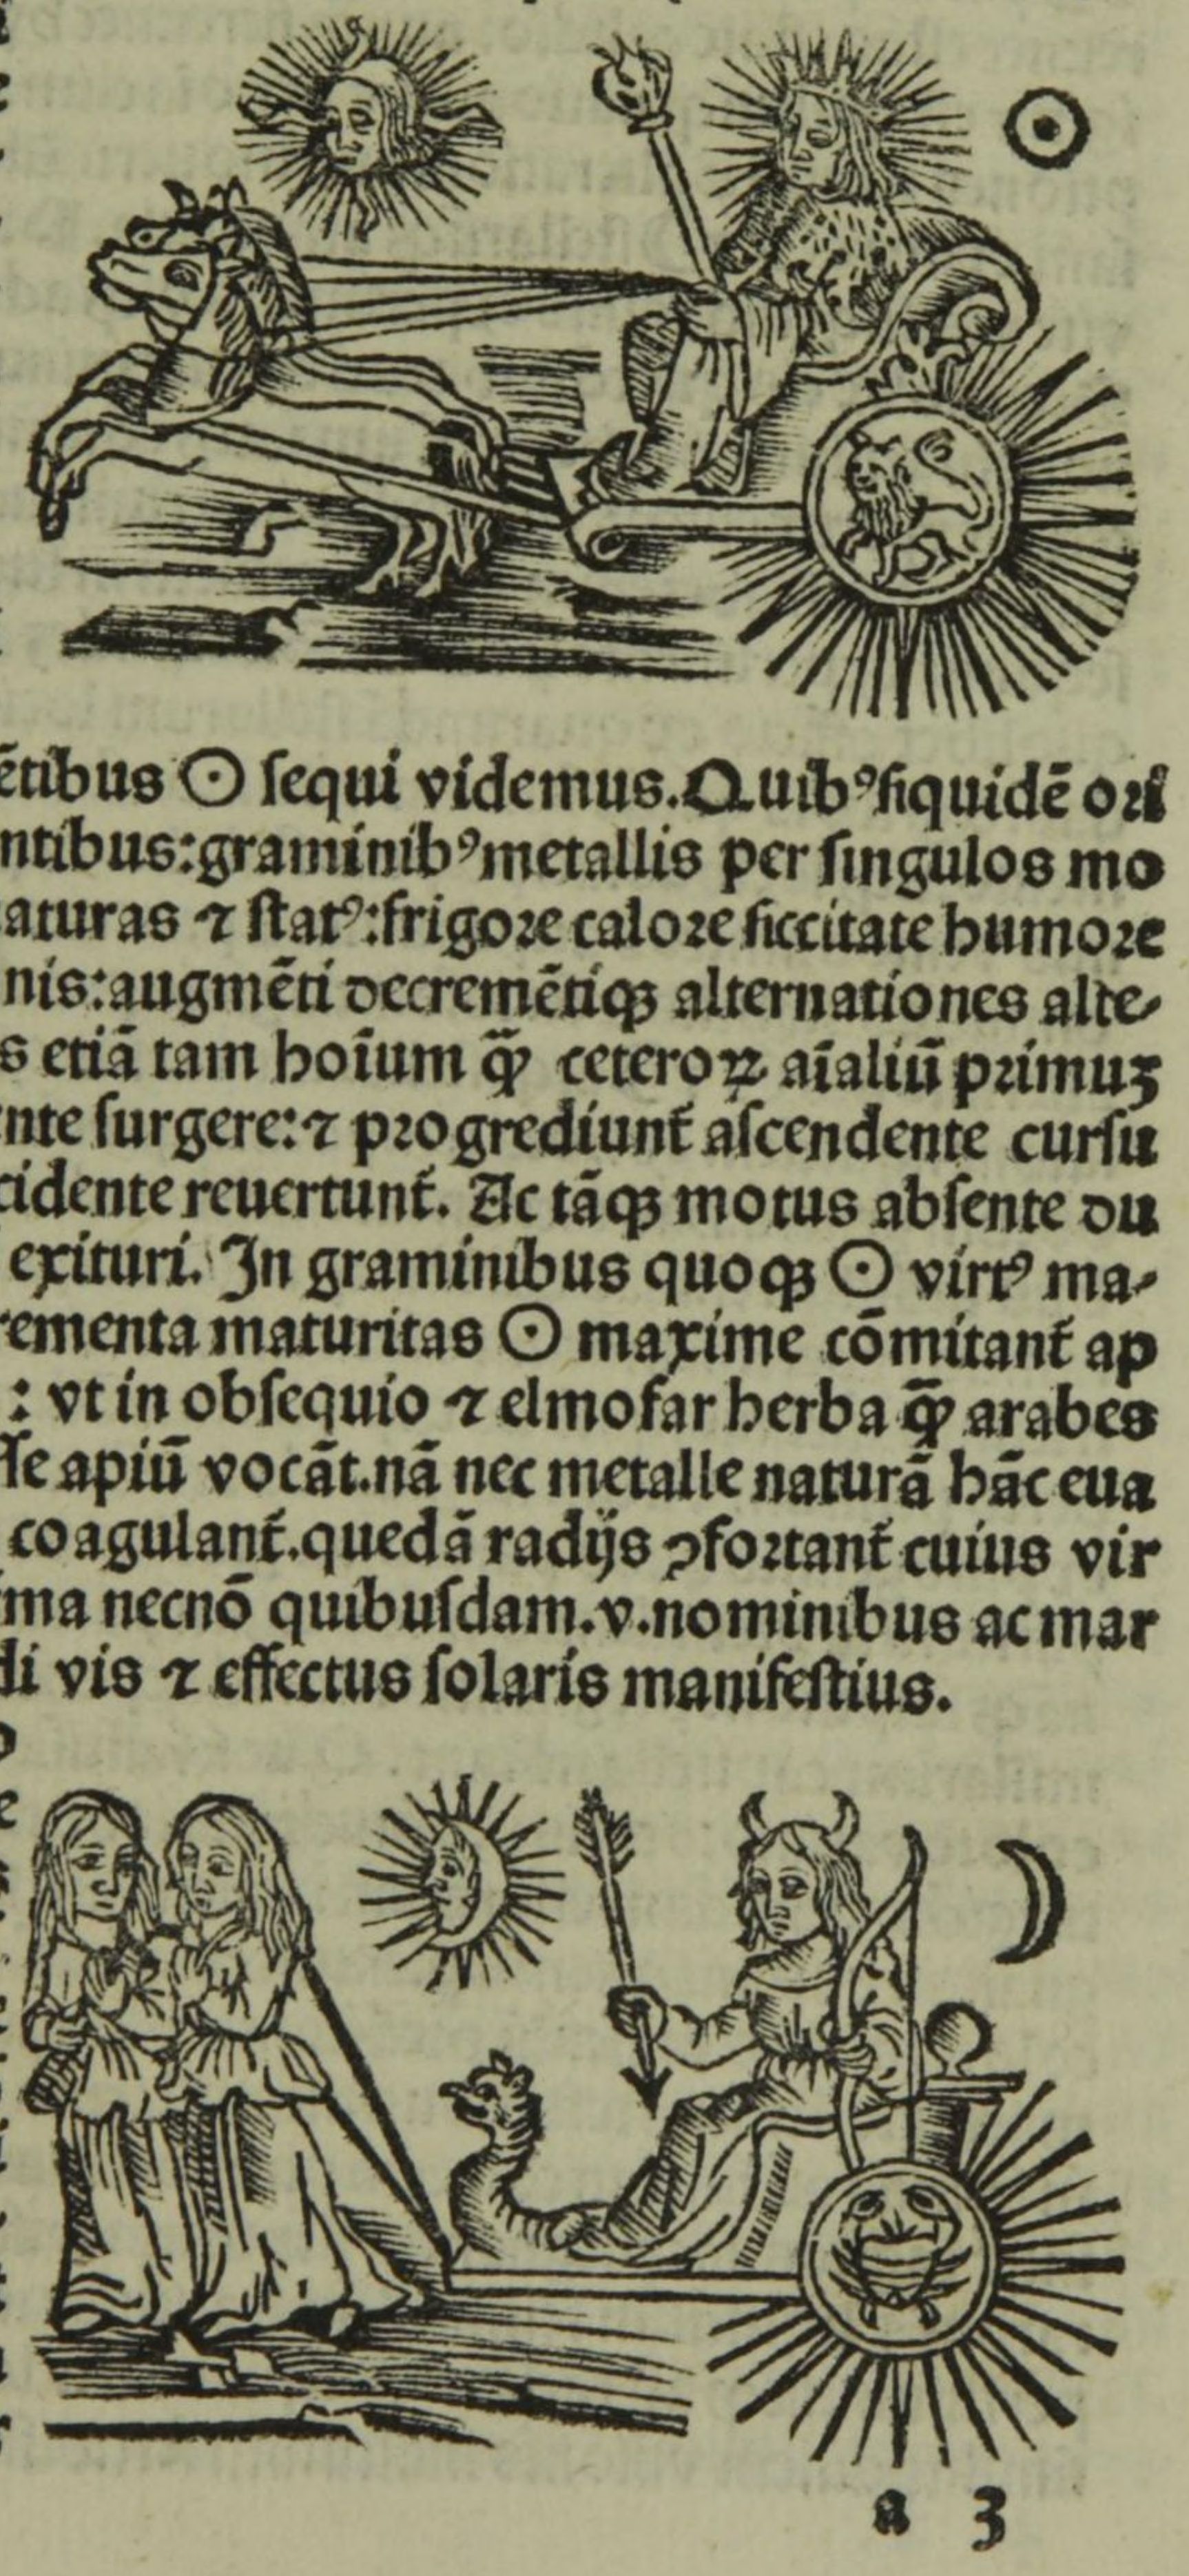 ētibus ☉ ſequi videmus. Quibꝰ ſiquidē ori
ntibus: graminibꝰ metallis per ſingulos mo
aturas ⁊ ſtatꝰ: frigore calore ſiccitate humore
nis: augmēti decremētiqꝫ alternationes alte⸗
s etiā tam hoīum q̄ꝫ ceteroꝝ aīaliū primuꝫ
nte ſurgere: ⁊ progrediunt᷑ aſcendente curſu
cidente reuertunt᷑. Ac tāqꝫ motus abſente du
exituri. In graminibus quoqꝫ ☉ virtꝰ ma⸗
rementa maturitas ☉ maxime cōmitant᷑ ap
: vt in obſequio ⁊ elmofar herba q̄ꝫ arabes
le apiū vocāt. nā nec metalle naturā hāc eua
coagulant᷑. quedā radijs ꝯfortant᷑ cuius vir
ma necnō quibuſdam .v. nominibus ac mar
di vis ⁊ effectus ſolaris manifeſtius.
a 3